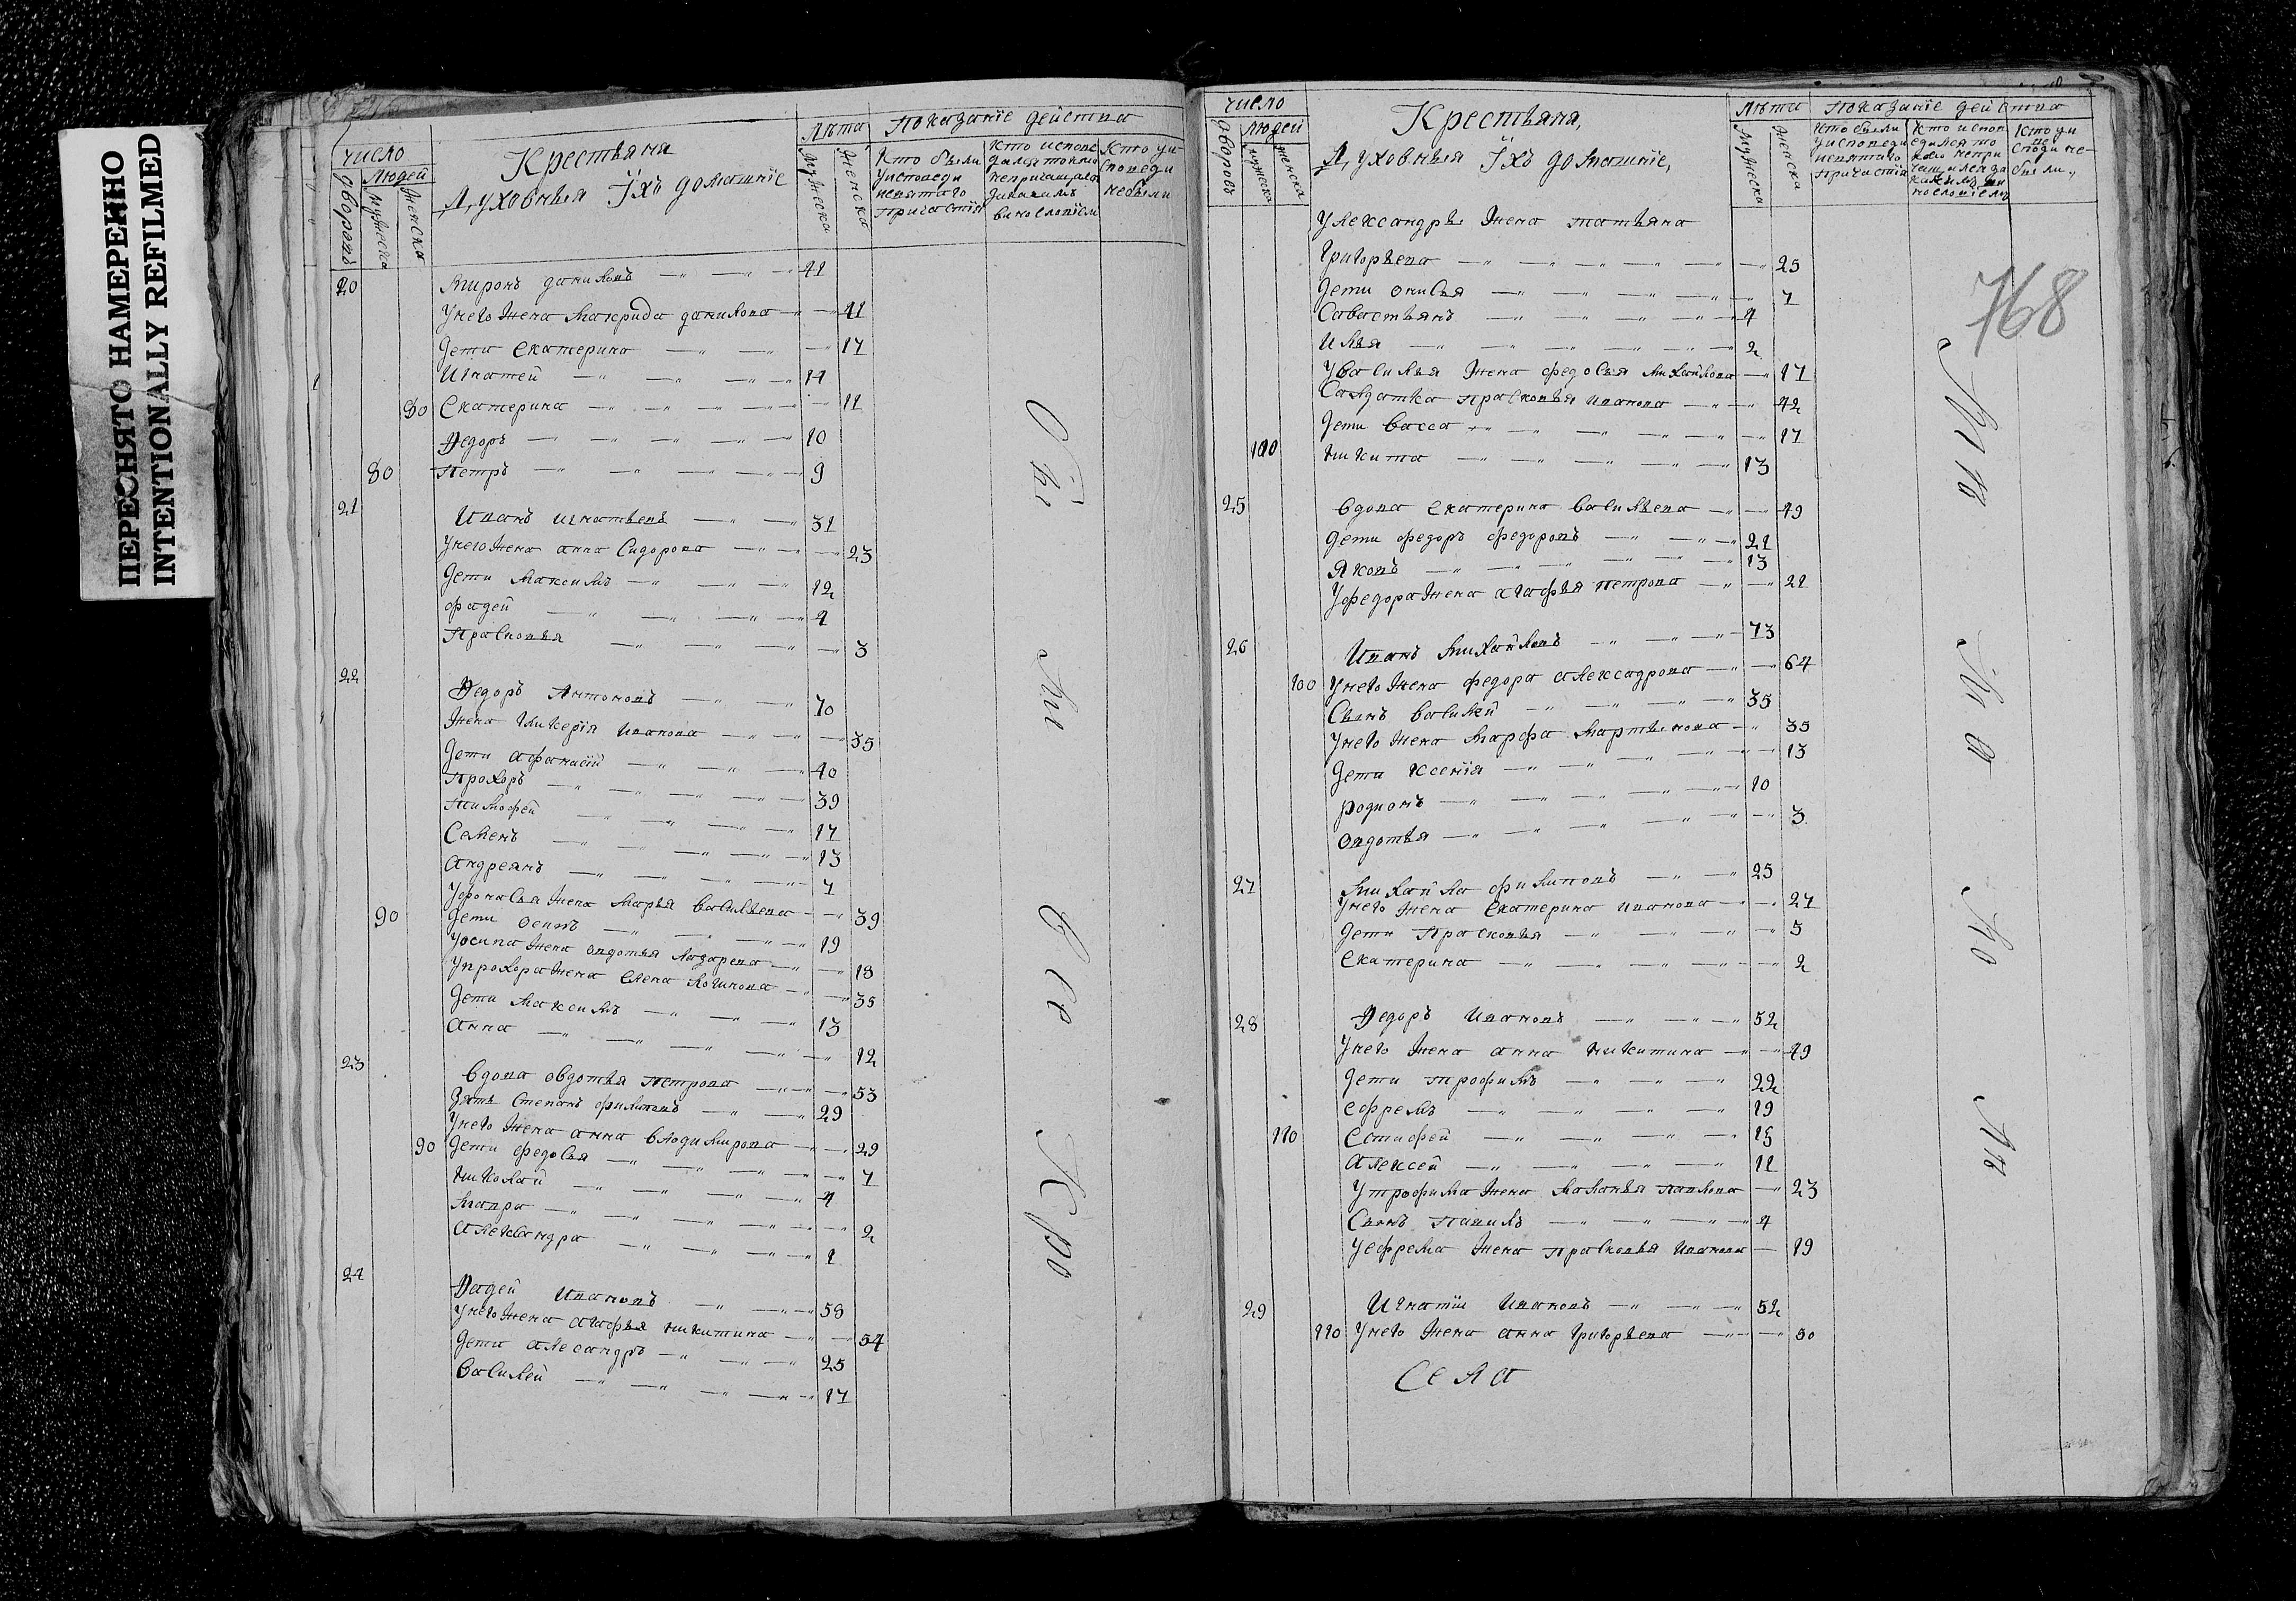 ПЕРЕСНЯТО НАМЕРЕННО
INTENTIONALLY REFILMED
число
людей
дворовъ
мужеска
женска
Крестьяня
Духовныя Їхъ домашнїе
лѣта
мужеска
женска
показанїе действа
кто были уисповеди исвятаго причастїя
кто исповедался токмо непричащался закакимъ винословїем
кто уисповеди небыли
20 Миронъ даниловъ 41
Унего жена Макрида данилова 41
дети екатерина 17
Игнатей 14
80 Екатерина 11
Федоръ 10
80 петръ 9
21 Иванъ игнатьевъ 31
Унего жена анна Сидорова 23
дети Максимъ 12
фадей 4
Прасковья 3
22 Федоръ Антоновъ 70
Жена Гликерїя Иванова 35
дети афанасїй 40
прохоръ 39
тимофей 17
Семенъ 13
андреянъ 7
Уфонасья жена Марья васильева 39
90 дети осипъ 19
Уосипа жена овдотья лазарева 18
Упрохора жена елена логинова 35
дети Максимъ 13
анна 12
23 вдова овдотья петрова 53
Зять Степанъ филиповъ 29
Унего жена анна влодимирова 29
90 дети федосья 7
николай 4
мавра 2
александра 1
24 Фадей Ивановъ 58
Унего жена агафья никитина 54
дети алесандръ 25
василей 17
Оне
же
все
Кро
число
людей
дворовъ
мужеска
женска
Крестьяня,
Духовныя Їхъ домашнїе,
лѣта
мужеска
женска
показанїе действа
кто были уисповеди исвятаго причастїя
кто испопедался то кмо непричащался за каким ви нословїемъ
кто уисповеди не были,
768
Уалександры жена татьяна
григорьева 25
дети онисья 7
Савостьянъ 4
илья 2
Увасилья жена федосья михайлова 17
Салдатка прасковья иванова 42
дети васса 17
100 никита 13
25 вдова екатерина васильева 49
дети федоръ федоровъ 21
яковъ 13
Уфедора жена агафья петрова 21
26 Иванъ михайловъ 73
100 Унего жена федора алексадрова 64
Сынъ василей 35
Унего жена марфа мартынова 35
дети ксенїя 13
родионъ 10
овдотья 3
27 михайла филиповъ 25
Унего жена екатерина иванова 27
дети прасковья 5
екатерина 2
28 Федоръ Ивановъ 52
Унего жена анна никитина 49
дети трофимъ 22
ефремъ 19
110 естифей 15
алексей 11
Утрофима жена маланья павлова 23
Сынъ павилъ 4
Уефрема жена прасковья иванова 19
29 Игнатїи Ивановъ 52
110 Унего жена анна григорьева 50
Села